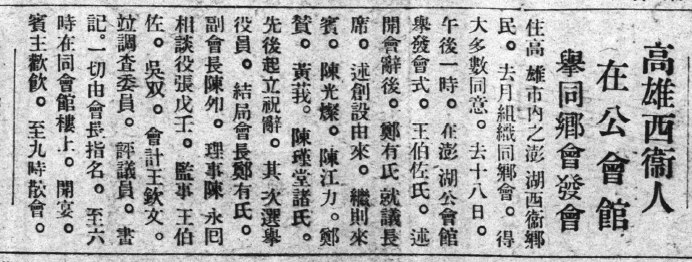 高雄西衞人
在公會館
舉同鄉會發會
住高雄市內之澎湖西衞鄉
民。去月組織同鄉會。得
大多數同意。去十八日。
午後一時。在澎湖公會館
舉發會式。王伯佐氏。述
開會辭後。鄭有氏就議長
席。述創設由來。繼則來
賓。陳光燦。陳江力。鄭
贊。黃莪。陳瑾堂諸氏。
先後起立祝辭。其次選舉
役員。結局會長鄭有氏。
副會長陳夘。理事陳永囘
相談役張戊壬。監事王伯
佐。吳双。會計王欽文。
並調查委員。評議員。書
記。一切由會長指名。至六
時在同會館樓上。開宴。
賓主歡飮。至九時散會。